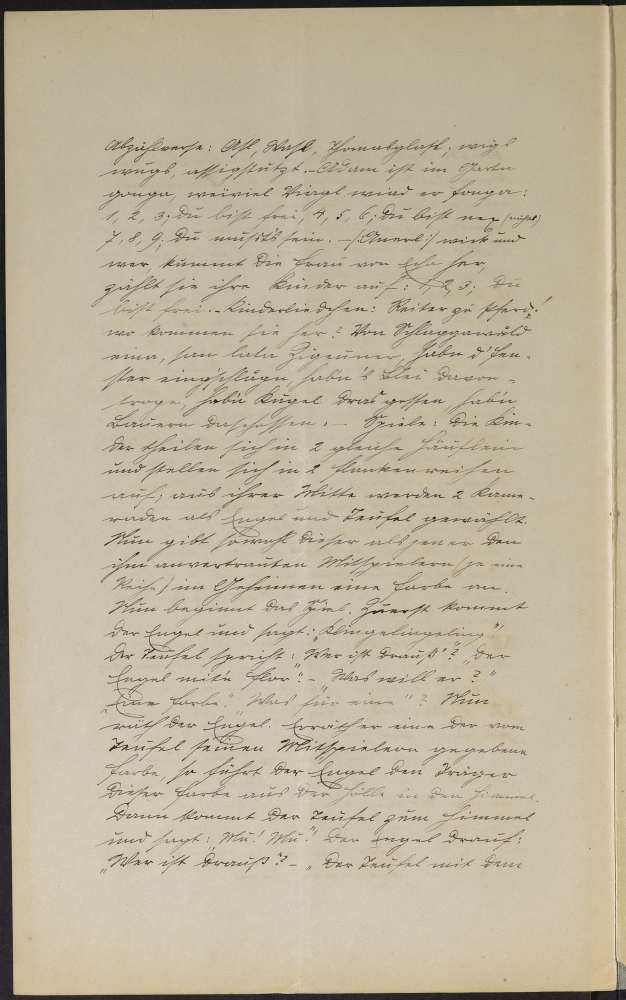 Abzählverse: Ast, Wast, Thomasglast; wigs
wugs, assigstutzt. - Adam ist im Garten
ganga, wieviel Viagl wird er fanga:
1, 2, 3; Du bist frei, 4, 5, 6; Du bist nex (nichts)
7, 8, 9; Du mußt's sein. - /:Anerl:/ wick und
wer, kummt die Frau von her,
zählt sie ihre Kinder auf: 1, 2, 3; Du
bist frei. - Kinderliedchen: Reiter zu Pferd!
wo kommen sie her? Von
eina, san lata Zigeuner, habn d' Fen-
ster eing'schlagn, habn's Blei davon-
troge, habn Kugel draus gossen, habn
Bauern daschossen. - Spiele: Die Kin-
der theilen sich in 2 gleiche Häuflein
und stellen sich in 2 Flankenreihen
auf; aus ihrer Mitte werden 2 Kame-
raden als Engel und Teufel gewählt.
Nun gibt sowohl dieser als jener den
ihm anvertrauten Mitspielern (je eine
Reihe) im Geheimen eine Farbe an.
Nun beginnt das Spiel. Zuerst kommt
der Engel und sagt: „Klingelingeling"
Der Teufel spricht: „Wer ist drauß'? „Der
Engel mitn Flor". - „Was will er?"
„Eine Farbe". „Was für eine"? Nun
räth der Engel. Erräth er eine der vom
Teufel seinen Mitspielern gegebene
Farbe, so führt der Engel den Träger
dieser Farbe aus der Hölle in den Himmel.
Dann kommt der Teufel zum Himmel
und sagt: „Mu! Mu!" Der Engel drauf:
„Wer ist drauß"? - „Der Teufel mit dem